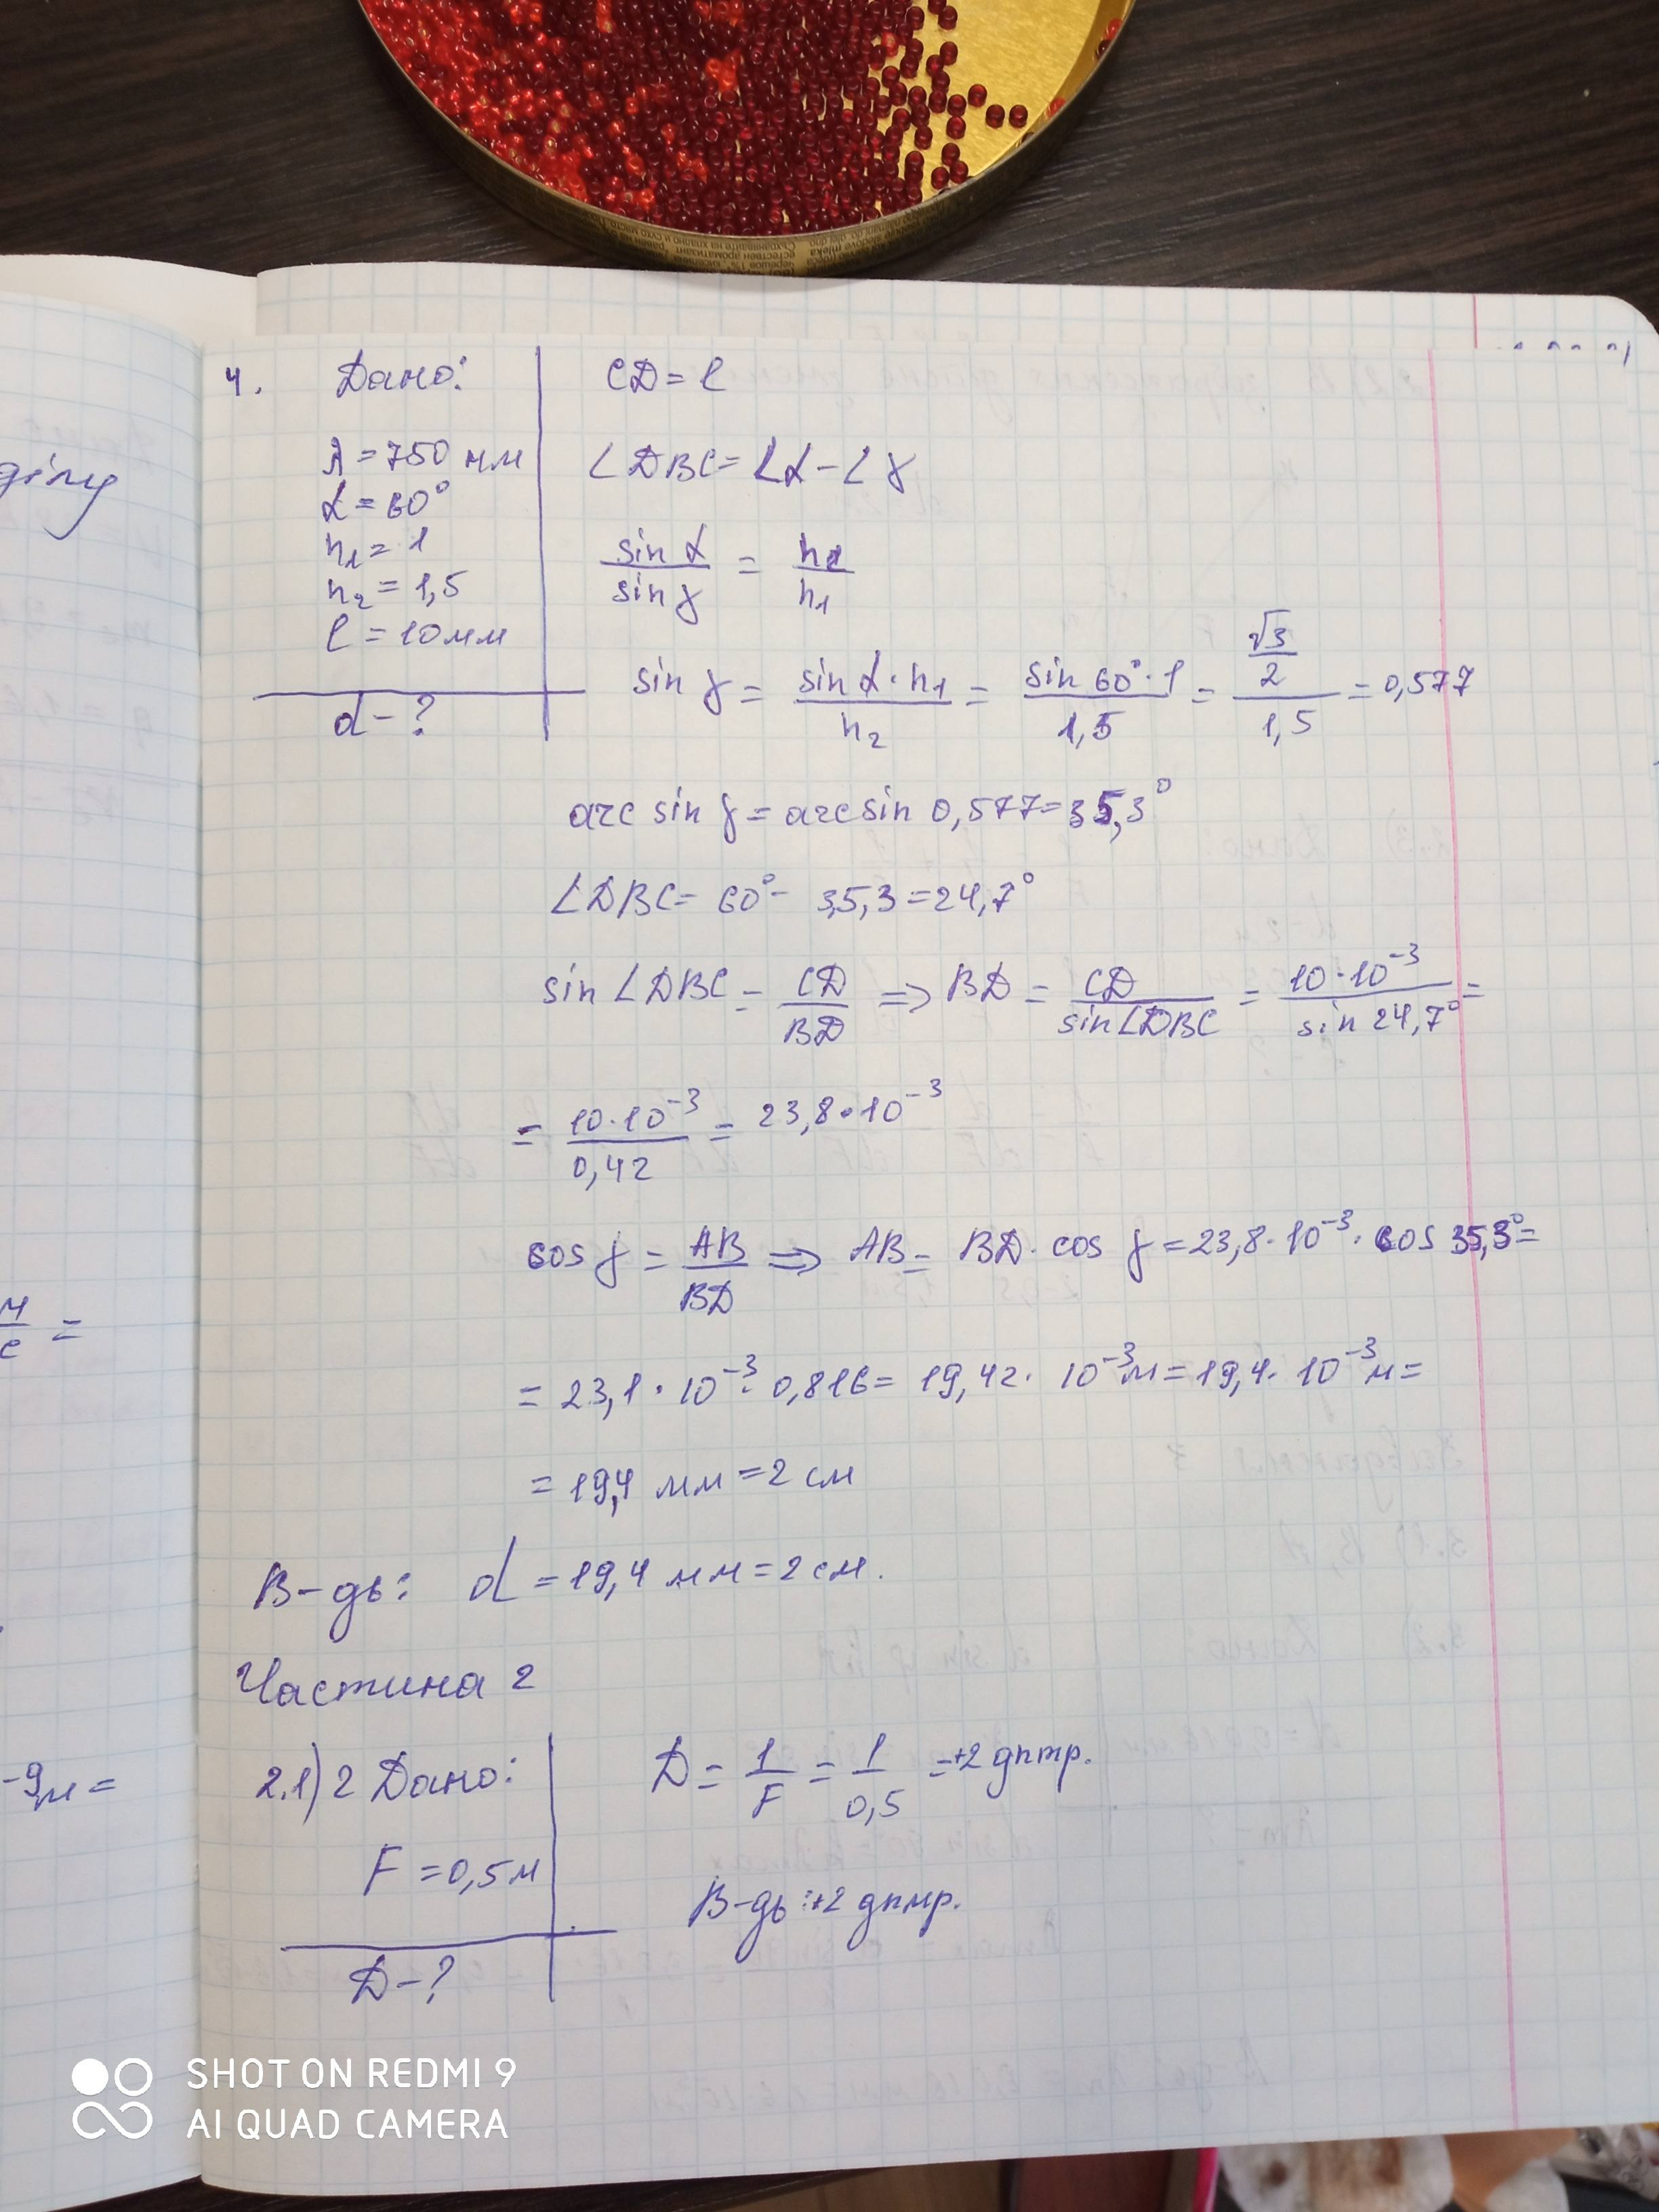 4. Дано:
λ = 750 нм
α = 60°
n₁ = 1
n₂ = 1,5
l = 10 мм
d - ?
CD = l
∠DBC = ∠α - ∠γ
sin α / sin γ = n₂ / n₁
sin γ = sin α · n₁ / n₂ = sin 60° · 1 / 1,5 = (√3 / 2) / 1,5 = 0,577
arc sin γ = arc sin 0,577 = 35,3°
∠DBC = 60° - 35,3 = 24,7°
sin ∠DBC = CD / BD ⇒ BD = CD / sin∠DBC = 10 · 10⁻³ / sin 24,7° =
= 10 · 10⁻³ / 0,42 = 23,8 · 10⁻³
cos γ = AB / BD ⇒ AB = BD · cos γ = 23,8 · 10⁻³ · cos 35,3° =
= 23,1 · 10⁻³ · 0,816 = 19,42 · 10⁻³ м = 19,4 · 10⁻³ м =
= 19,4 мм = 2 см
В-дь: d = 19,4 мм = 2 см.
Частина 2
2.1) 2 Дано:
F = 0,5 м
D - ?
D = 1 / F = 1 / 0,5 = +2 дптр.
В-дь: +2 дптр.
м / с =
⁻⁹м =
SHOT ON REDMI 9
AI QUAD CAMERA